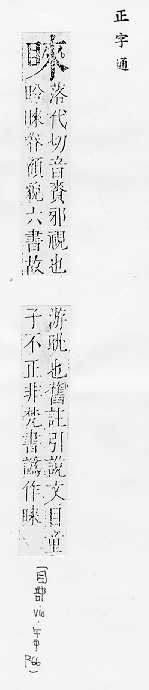 正字通
睞
落代切音賚邪視也
睞眷顧貌六書故
游眺也舊註引說文目童
子不正非梵書譌作
目部 午中